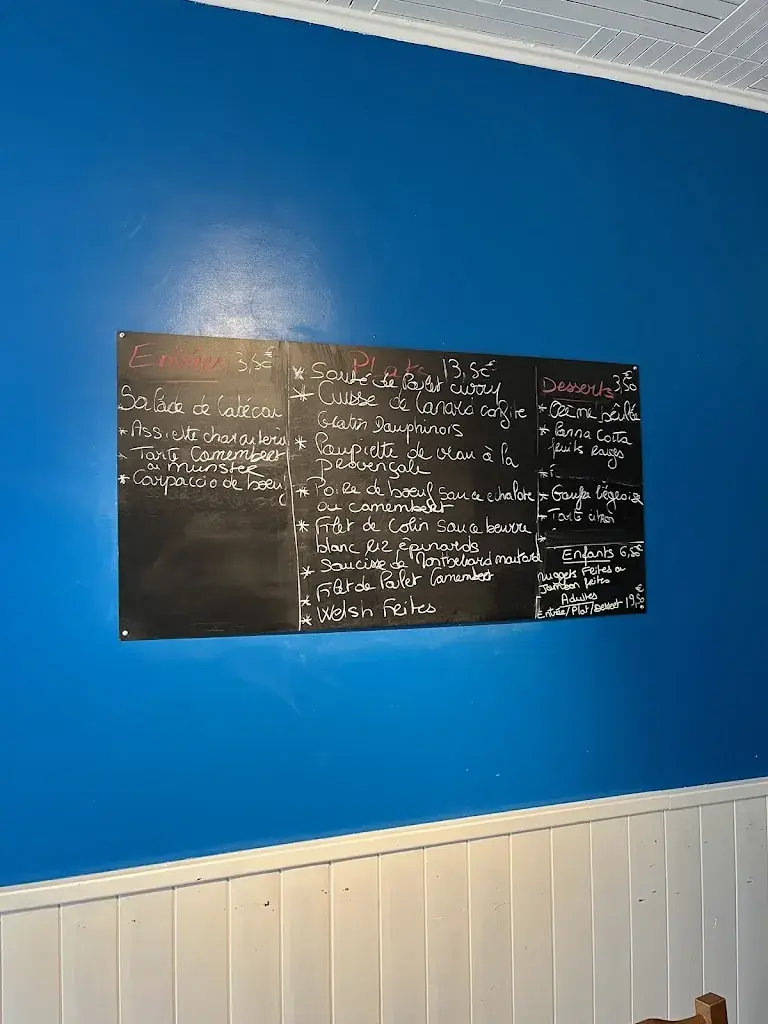 Entrées 3,5€
Salade de Cabécou
* Assiette charcuterie
* Tarte Camembert
ou munster
* Carpaccio de boeuf
Plats 13,5€
* Sauté de Poulet curry
* Cuisse de Canard confite
Gratin Dauphinois
* Paupiette de veau à la
provençale
* Poire de boeuf sauce echalote
ou camembert
* Filet de Colin sauce beurre
blanc riz épinards
* Saucisse de Montbeliard moutard
* Filet de Poulet Camembert
* Welsh Frites
Desserts 3,50€
* Crème brûlée
* Panna Cotta
fruits rouges
*
* Gaufre liégeoise
* Tarte citron
*
Enfants 6,50€
Nuggets Frites ou
Jambon frites
Adultes
Entrée/Plat/Dessert 19,50€